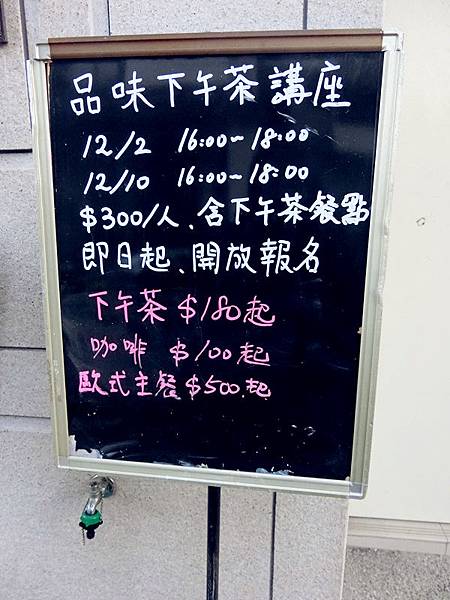 品味下午茶講座
12/2 16:00~18:00
12/10 16:00~18:00
$300/人、含下午茶餐點
即日起、開放報名
下午茶 $180起
咖啡 $100起
歐式主餐 $500起